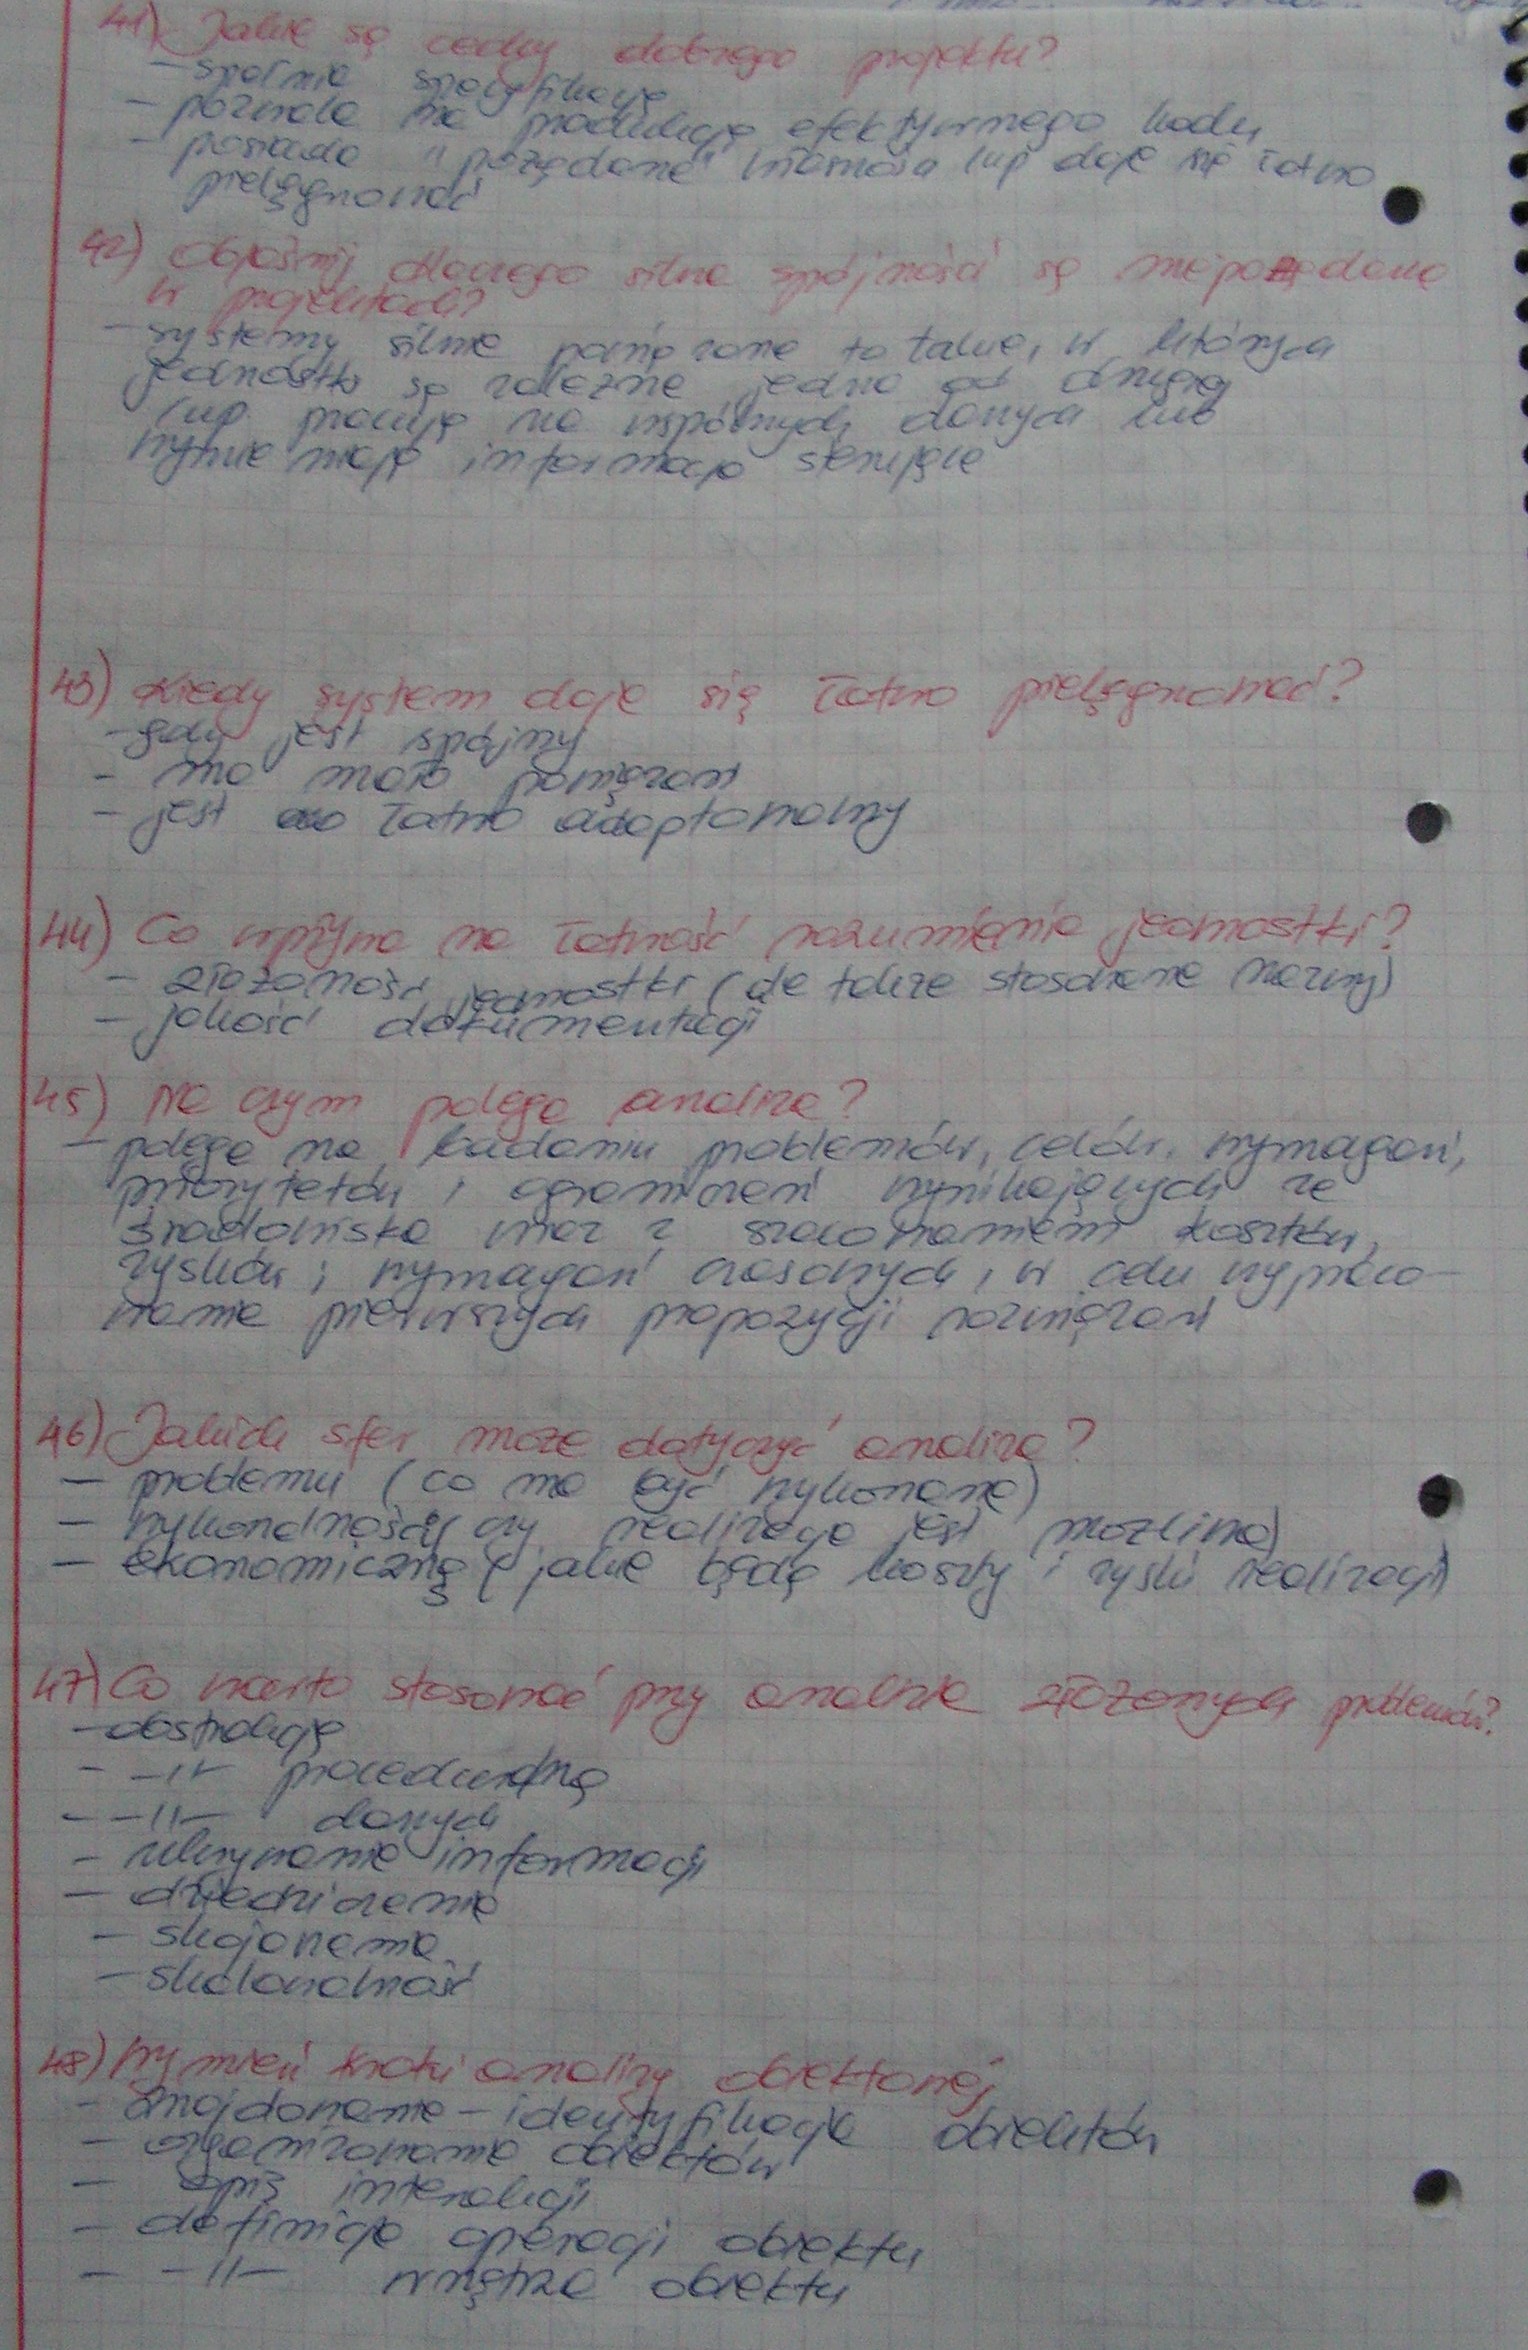 41) Jakie są cechy dobrego projektu?
- spełnia specyfikację
- pozwala na produkcję efektywnego kodu
- posiada "pożądane" własności np daje się łatwo
pielęgnować
42) Objaśnij dlaczego silne spójności są niepożądane
w projektach?
- systemy silnie powiązane to takie, w których
jednostki są zależne jedna od drugiej
(np. pracują na wspólnych danych lub
wymieniają informacje sterujące
43) Kiedy system daje się łatwo pielęgnować?
- gdy jest spójny
- ma mało powiązań
- jest łatwo adaptowalny
44) Co wpływa na łatwość rozumienia jednostki?
- złożoność jednostki (ale także stosowane nazwy)
- jakość dokumentacji
45) Na czym polega analiza?
- polega na badaniu problemów, celów, wymagań,
priorytetów i ograniczeń wynikających ze
środowiska wraz z szacowaniem kosztów,
zysków i wymagań czasowych, w celu wypraco-
wania pierwszych propozycji rozwiązań
46) Jakich sfer może dotyczyć analiza?
- problemu (co ma być wykonane)
- wykonalności (czy realizacja jest możliwa)
- ekonomiczną (jakie będą koszty i zyski realizacji)
47) Co warto stosować przy analizie złożonych problemów?
- abstrakcję
- -11- proceduralną
- -11- danych
- ukrywanie informacji
- dziedziczenie
- skojarzenie
- skalowalność
48) Wymień kroki analizy obiektowej
- Znajdowanie - identyfikacja obiektów
- organizowanie obiektów
- opis interakcji
- definicja operacji obiektu
- -11- wnętrza obiektu